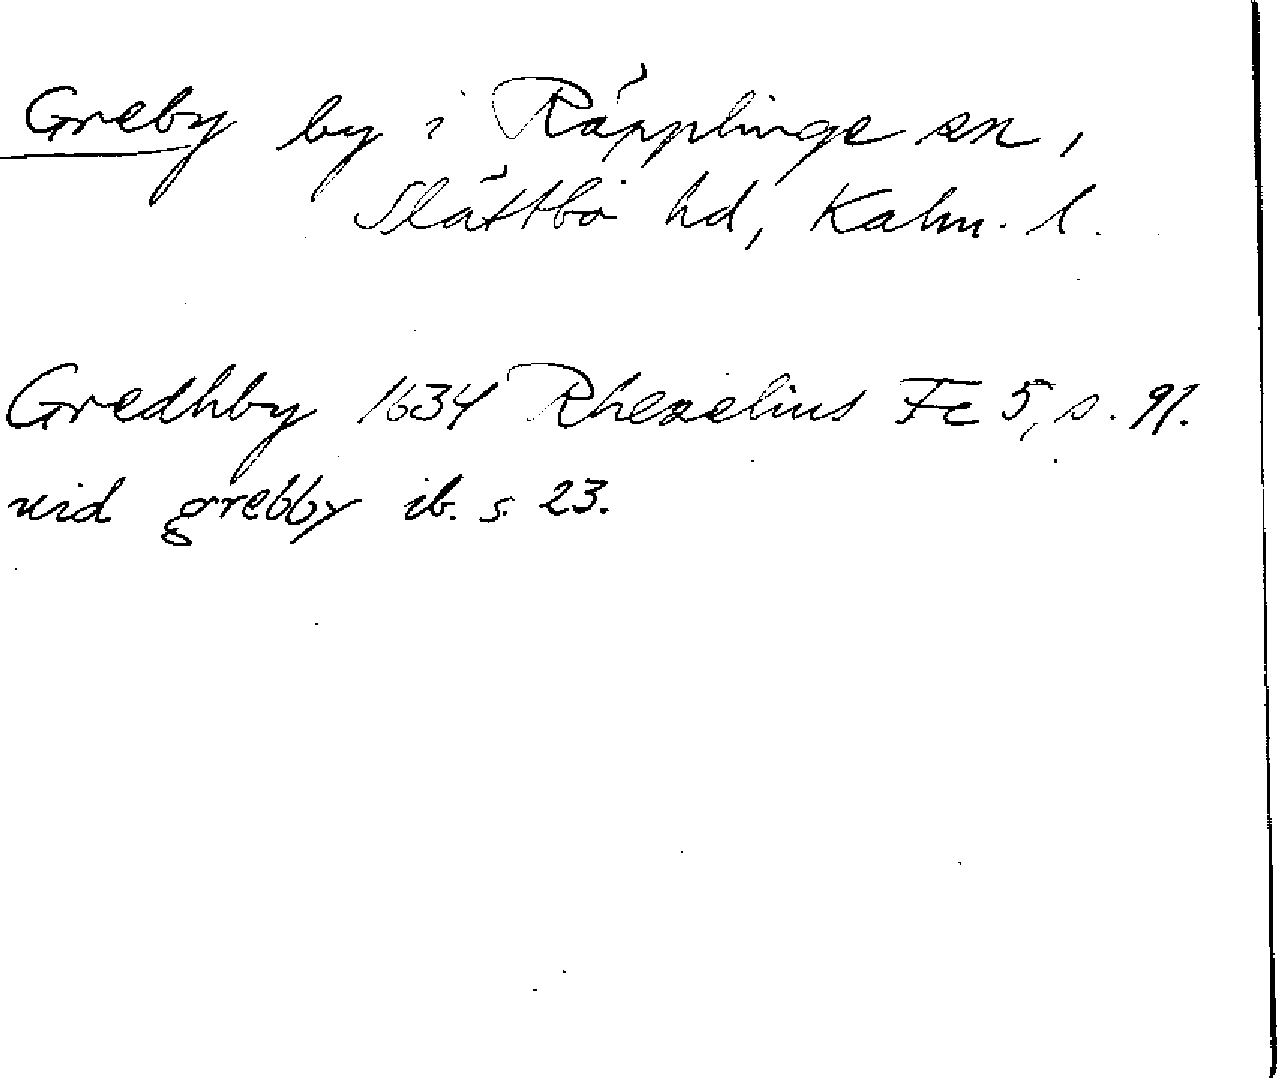 Greby by i Räpplinge sn,
Slättbo hd, Kalm. l.
Gredhby 1634 Rhezelius Fc 5, s. 91.
uid grebby ib. s. 23.